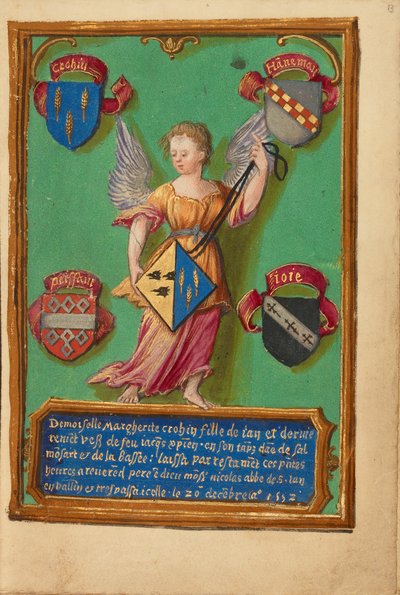 13
Crohin
Hānemou
perssant
Fiore
Demoiselle Margherite crohin fille de ian et derniē
remēt vefs de feu iacqs opien· en son tāps dāe de sal
mōsart et de la bassee: laissa par testamēt ces pñtes
heures a reverēd pere ē dieu mōsr nicolas abbe de s. ian
en vallen et trespassa icelle le 20e decēbre ao 1552